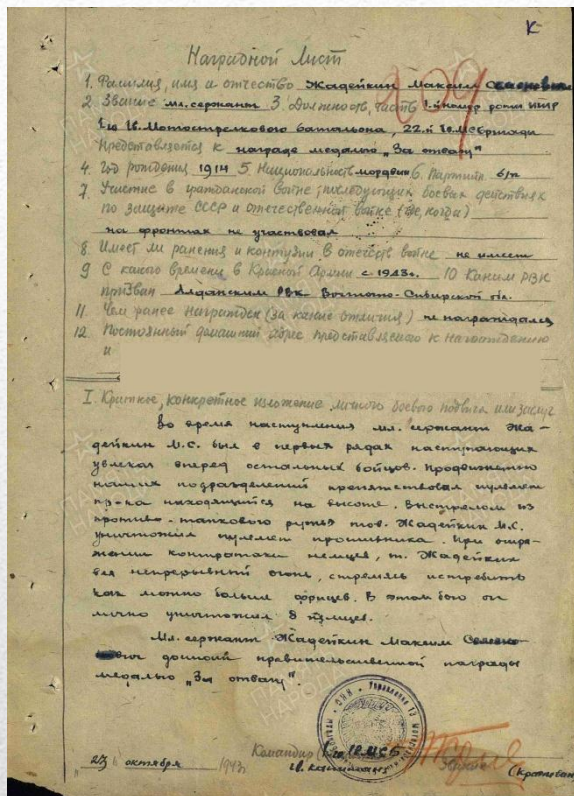 К
Наградной Лист
1. Фамилия, имя и отчество Жадейкин Максим
2. Звание мл. сержант 3. Должность, часть 1-й номер роты ПТР
1-го Гв. Мотострелкового батальона, 22-й Гв. МСБригады
Представляется к награде медалью „За отвагу"
4. Год рождения 1914 5. Национальность мордвин 6. Партийн. б/п
7. Участие в гражданской войне, последующих боевых действиях
по защите СССР и отечественной войне (где, когда)
на фронтах не участвовал
8. Имеет ли ранения и контузии в отечеств войне не имеет
9 С какого времени в Красной Армии с 1943г. 10 Каким РВК
призван Алданским РВК Восточно-Сибирской обл.
11. Чем ранее награжден (за какие отличия) не награждался
12. Постоянный домашний адрес представляемого к награждению
и
I. Краткое, конкретное изложение личного боевого подвига или заслуг
Во время наступления мл. сержант Жа-
дейкин М.С. был в первых рядах наступающих
увлекая вперед остальных бойцов. Продвижению
наших подразделений препятствовал пулемет
пр-ка находящийся на высоте. Выстрелом из
противо-танкового ружья тов. Жадейкин М.С.
уничтожил пулемет противника. При отра-
жении контратаки немцев, т. Жадейкин
вел непрерывный огонь, стремясь истребить
как можно больше фрицев. В этом бою он
лично уничтожил 8 немцев.
Мл. сержант Жадейкин Максим
достоин правительственной награды
медалью „За отвагу".
Командир 1 го Гв. МСБ
гв. капитан
"23" октября 1943г.